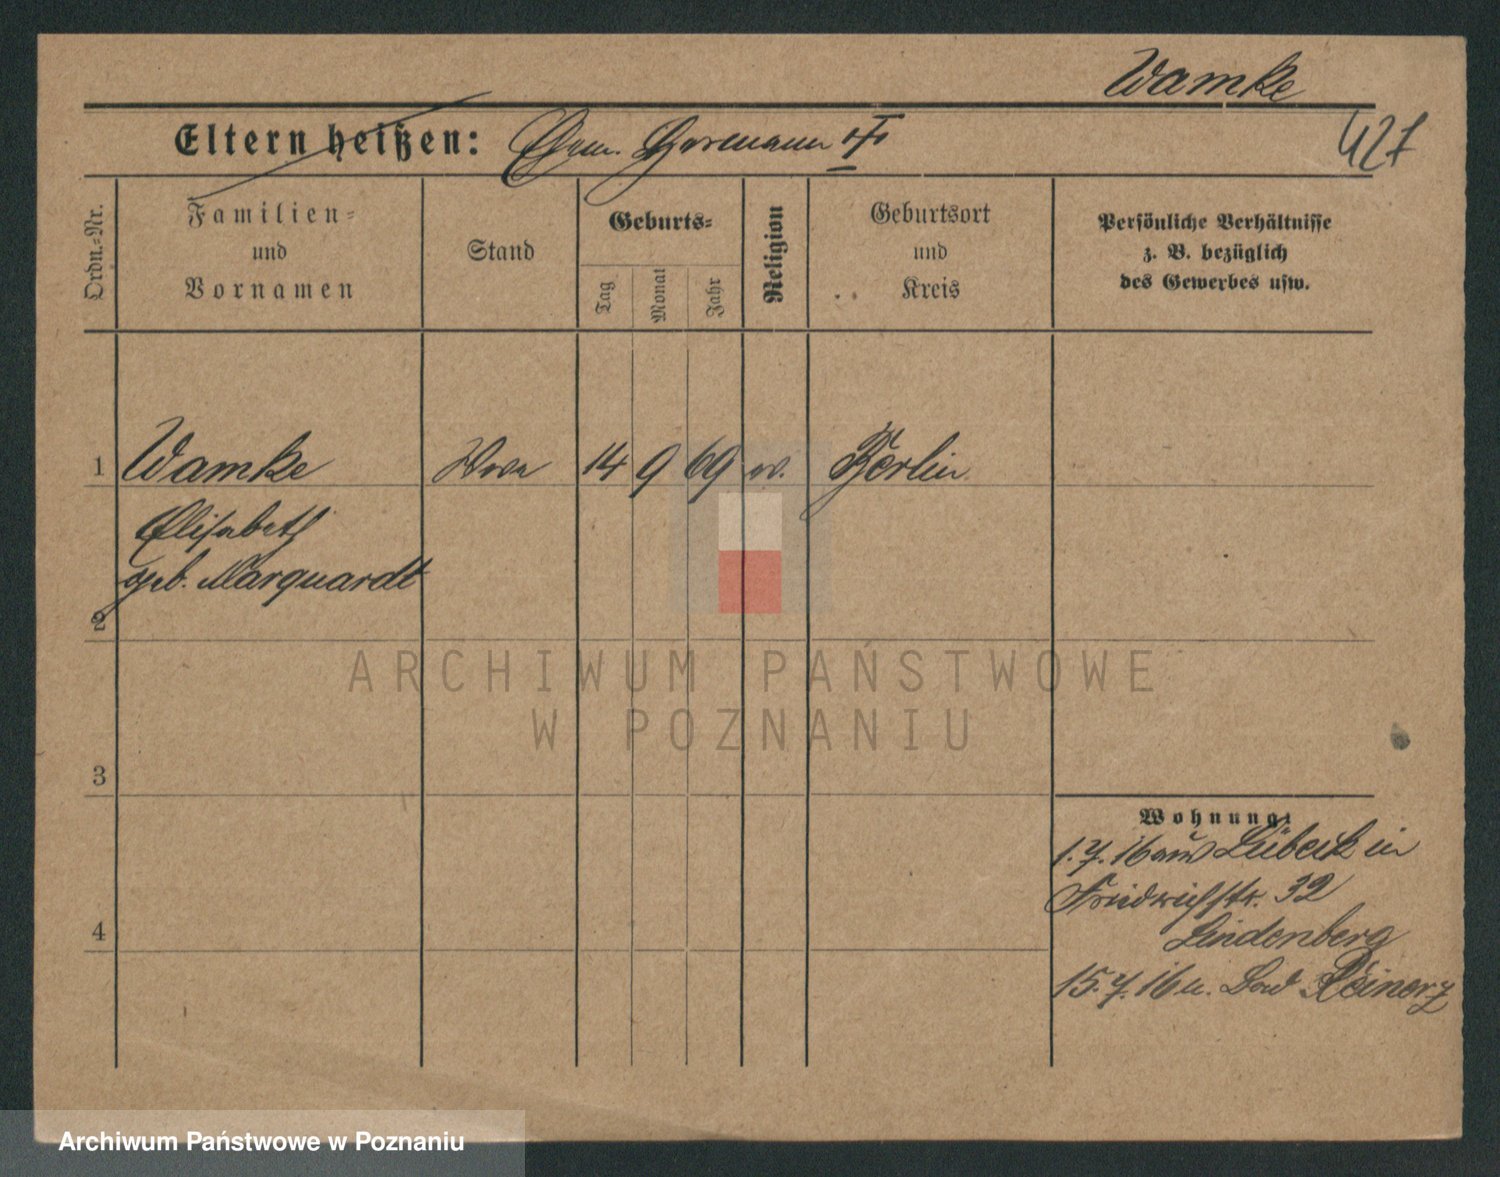 Wamke
427
Eltern heißen: Hermann
Ordn.=Nr.
Familien=
und
Vornamen
Stand
Geburts=
Tag
Monat
Jahr
Religion
Geburtsort
und
Kreis
Persönliche Verhältnisse
z. B. bezüglich
des Gewerbes usw.
1 Wamke Wwe 14 9 69 ev. Berlin
Elisabeth
geb. Marquardt
2
3
4
Wohnung:
1.7.16 aus Lübeck in
Friedrichstr. 32
Lindenberg
15.7.16 n. Bad Reinerz
ARCHIWUM PAŃSTWOWE
W POZNANIU
Archiwum Państwowe w Poznaniu